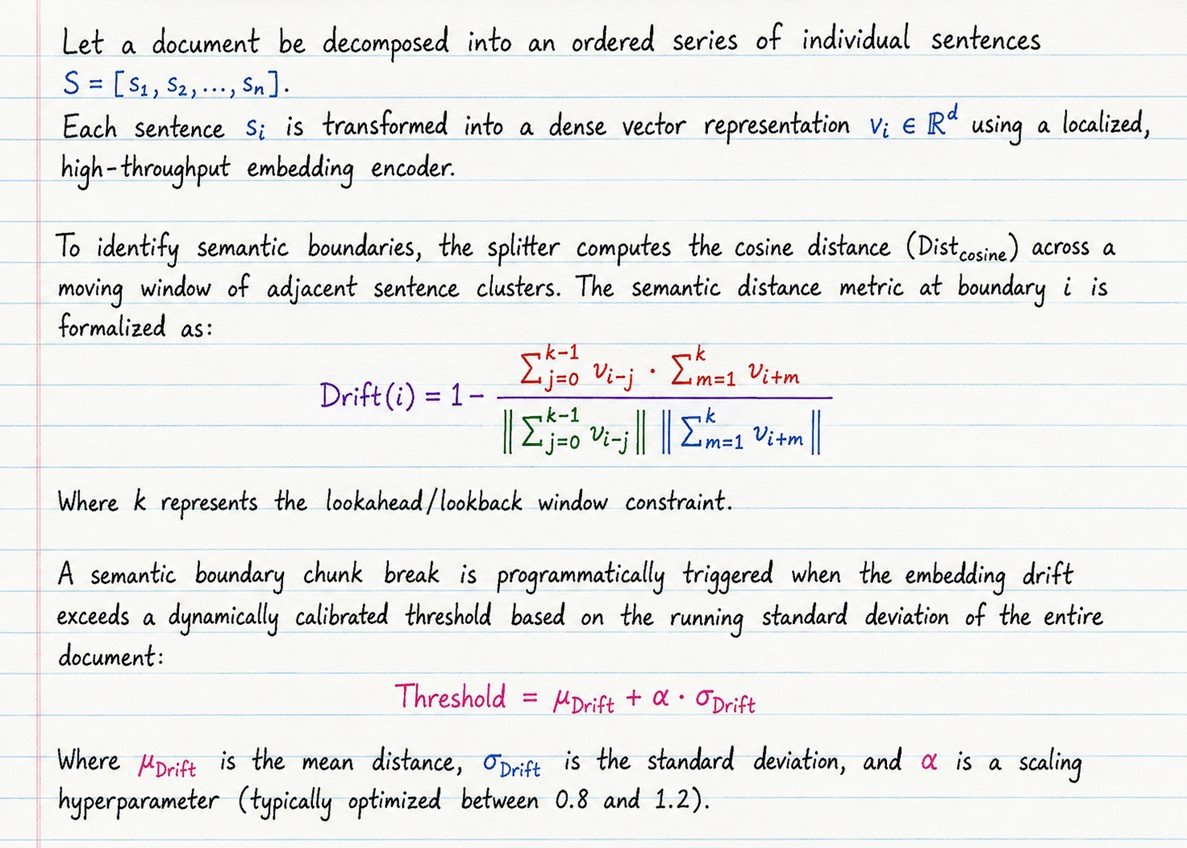 Let a document be decomposed into an ordered series of individual sentences
S = [s₁, s₂, ..., sₙ].
Each sentence sᵢ is transformed into a dense vector representation vᵢ ∈ ℝᵈ using a localized,
high-throughput embedding encoder.
To identify semantic boundaries, the splitter computes the cosine distance (Dist_cosine) across a
moving window of adjacent sentence clusters. The semantic distance metric at boundary i is
formalized as:
Drift(i) = 1 - \frac{\sum_{j=0}^{k-1} v_{i-j} \cdot \sum_{m=1}^{k} v_{i+m}}{\left\| \sum_{j=0}^{k-1} v_{i-j} \right\| \left\| \sum_{m=1}^{k} v_{i+m} \right\|}
Where k represents the lookahead/lookback window constraint.
A semantic boundary chunk break is programmatically triggered when the embedding drift
exceeds a dynamically calibrated threshold based on the running standard deviation of the entire
document:
Threshold = μ_Drift + α · σ_Drift
Where μ_Drift is the mean distance, σ_Drift is the standard deviation, and α is a scaling
hyperparameter (typically optimized between 0.8 and 1.2).